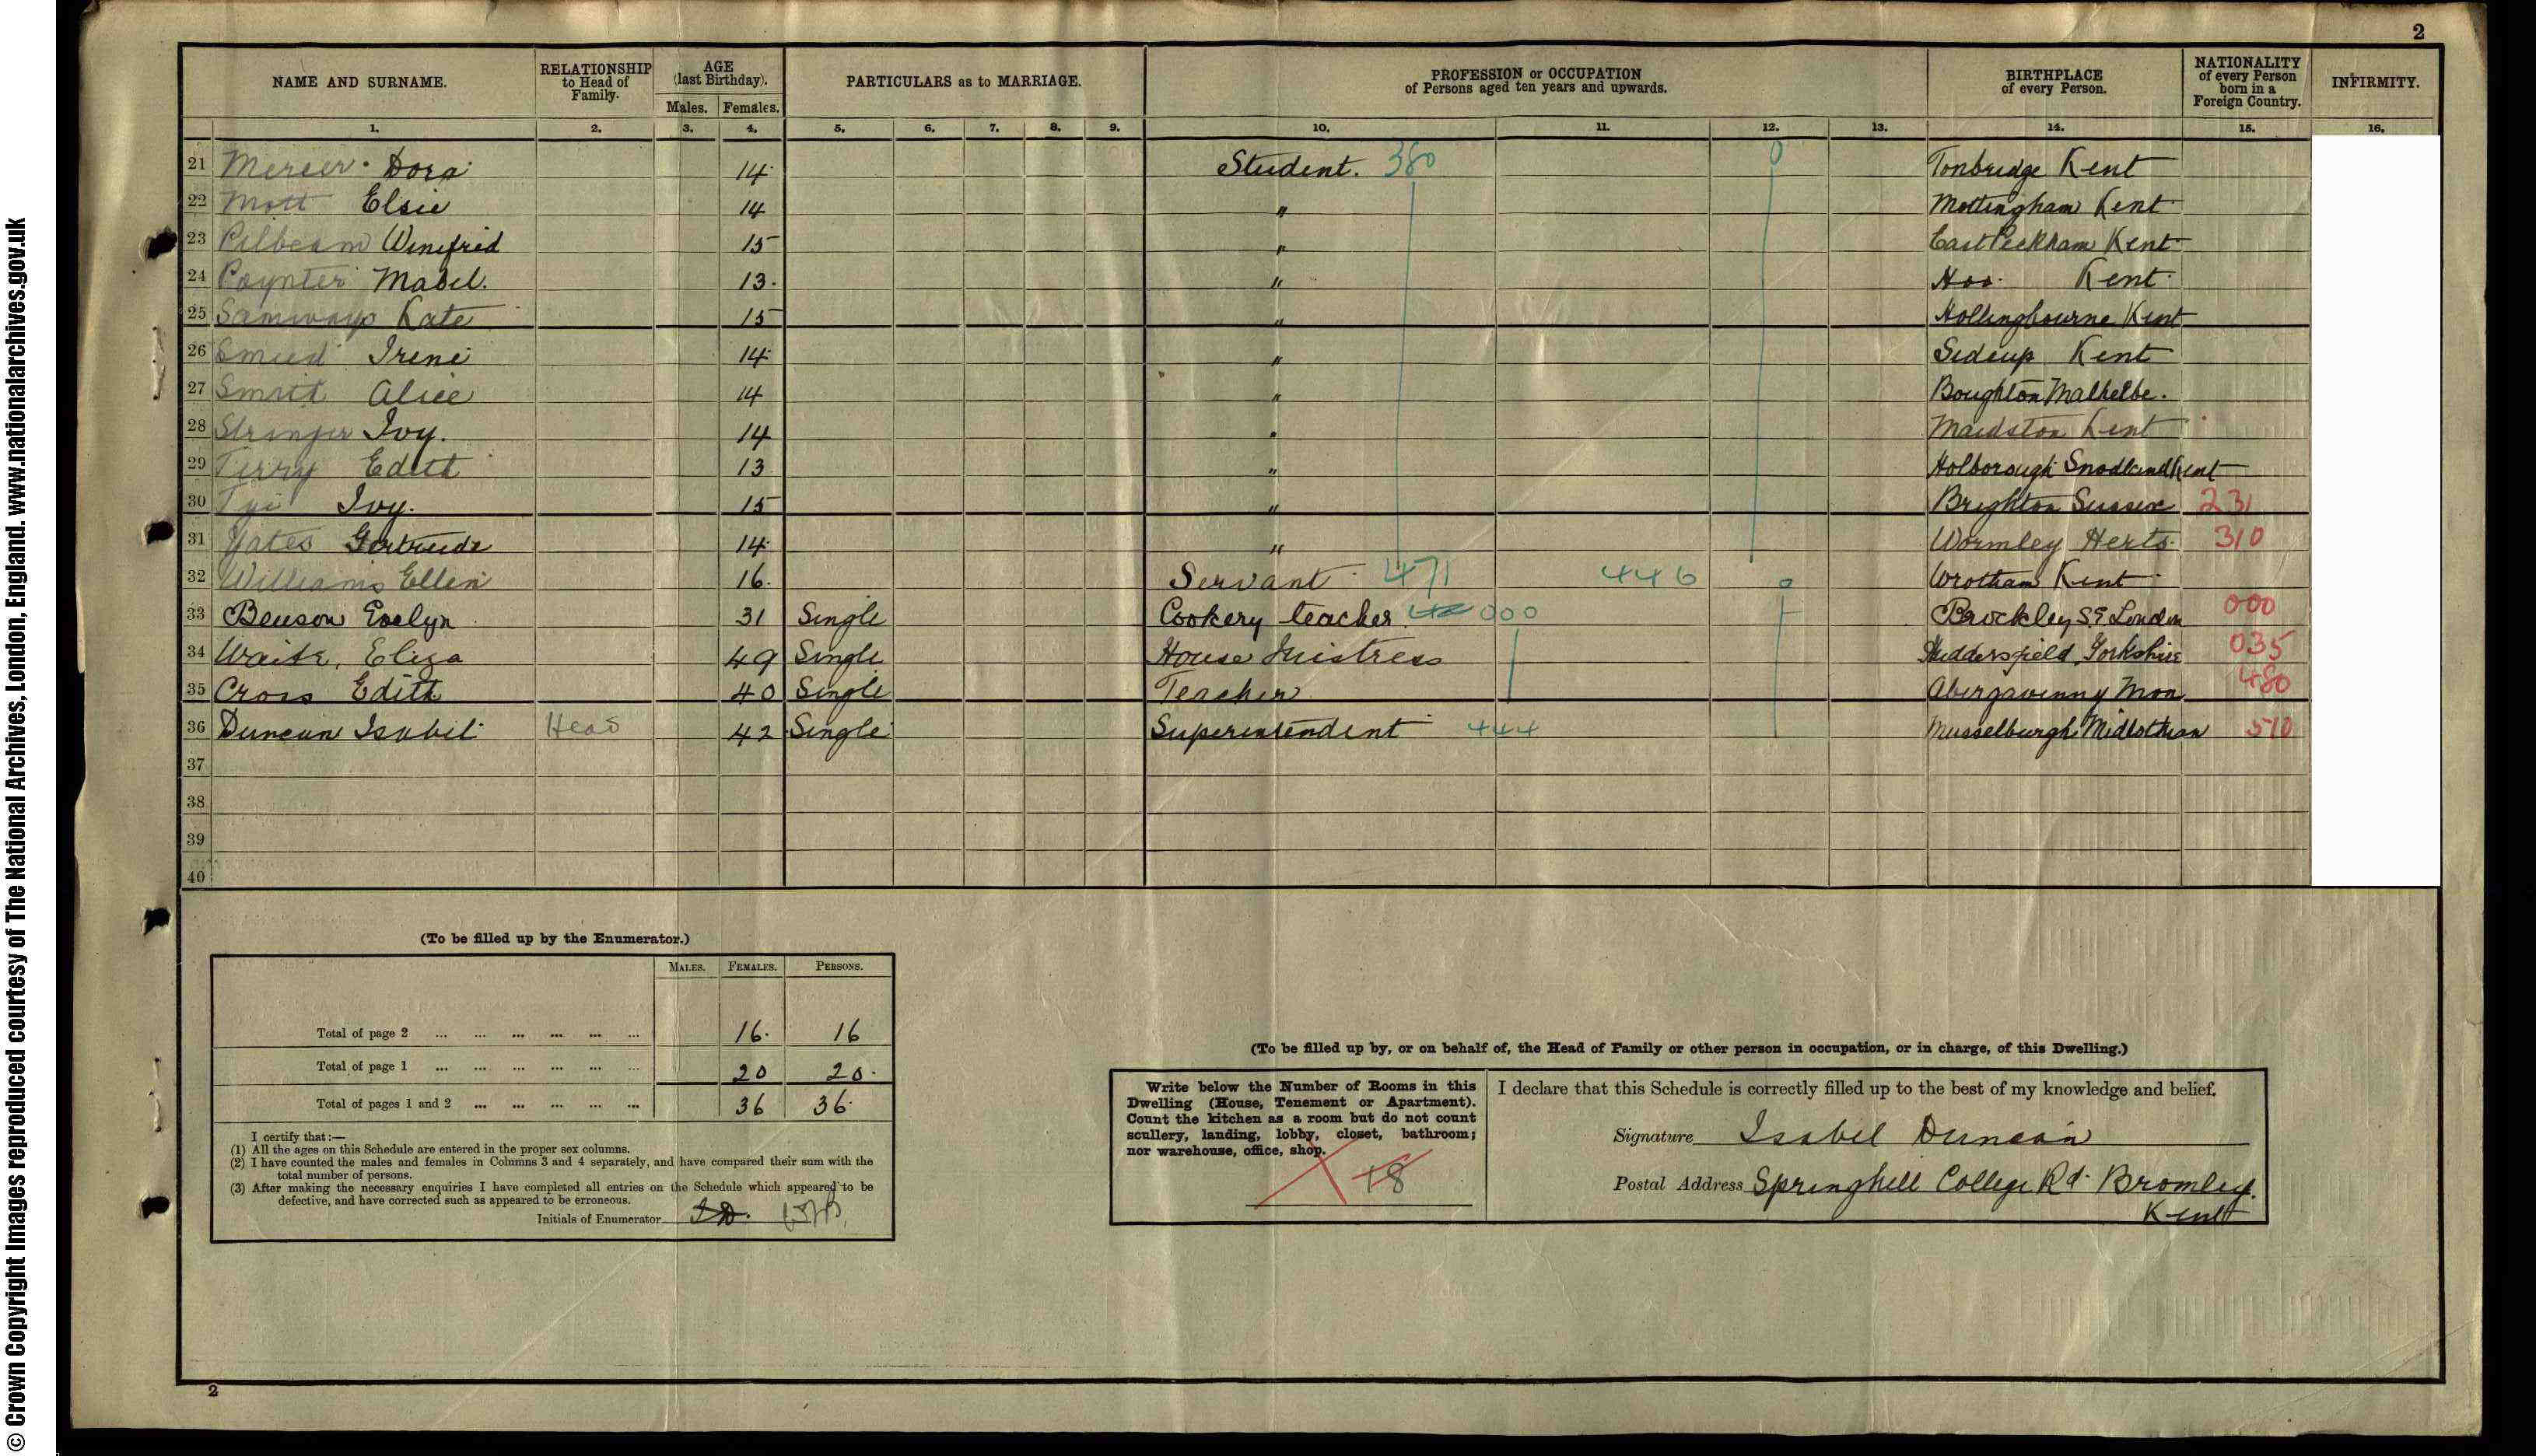 2
NAME AND SURNAME. RELATIONSHIP to Head of Family. AGE (last Birthday). Males. Females. PARTICULARS as to MARRIAGE. PROFESSION or OCCUPATION of Persons aged ten years and upwards. BIRTHPLACE of every Person. NATIONALITY of every Person born in a Foreign Country. INFIRMITY.
1. 2. 3. 4. 5. 6. 7. 8. 9. 10. 11. 12. 13. 14. 15. 16.
21 Mercer Dora 14 Student. 380 0 Tonbridge Kent
22 Mott Elsie 14 " Mottingham Kent
23 Pilbeam Winifrid 15 " East Peckham Kent
24 Poynter Mabel. 13 " Hoo Kent
25 Samways Kate 15 " Hollingbourne Kent
26 Irene 14 " Sidcup Kent
27 Smith Alice 14 " Boughton Malhelbe.
28 Stringer Ivy. 14 " Maidston Kent
29 Terry Edith 13 " Holborough Snodland Kent
30 Ivy. 15 " Brighton Sussex 231
31 Yates Gertrude 14 " Wormley Herts 310
32 Williams Ellen 16 Servant 471 446 0 Wrotham Kent
33 Benson Evelyn 31 Single Cookery teacher 000 Brockley S.E London 000
34 Waite, Eliza 49 Single House Mistress Huddersfield Yorkshire 035
35 Cross Edith 40 Single Teacher Abergavenny Mon 480
36 Duncan Isabel Head 42 Single Superintendent 444 Musselburgh Midlothian 510
37
38
39
40
(To be filled up by the Enumerator.)
MALES. FEMALES. PERSONS.
Total of page 2 ... ... ... ... ... ... 16 16
Total of page 1 ... ... ... ... ... ... 20 20
Total of pages 1 and 2 ... ... ... ... ... 36 36
I certify that:—
(1) All the ages on this Schedule are entered in the proper sex columns.
(2) I have counted the males and females in Columns 3 and 4 separately, and have compared their sum with the
total number of persons.
(3) After making the necessary enquiries I have completed all entries on the Schedule which appeared to be
defective, and have corrected such as appeared to be erroneous.
Initials of Enumerator I.D.
(To be filled up by, or on behalf of, the Head of Family or other person in occupation, or in charge, of this Dwelling.)
Write below the Number of Rooms in this
Dwelling (House, Tenement or Apartment).
Count the kitchen as a room but do not count
scullery, landing, lobby, closet, bathroom;
nor warehouse, office, shop.
18
I declare that this Schedule is correctly filled up to the best of my knowledge and belief.
Signature Isabel Duncan
Postal Address Springhill College Rd. Bromley.
Kent
2
© Crown Copyright Images reproduced courtesy of The National Archives, London, England. www.nationalarchives.gov.uk